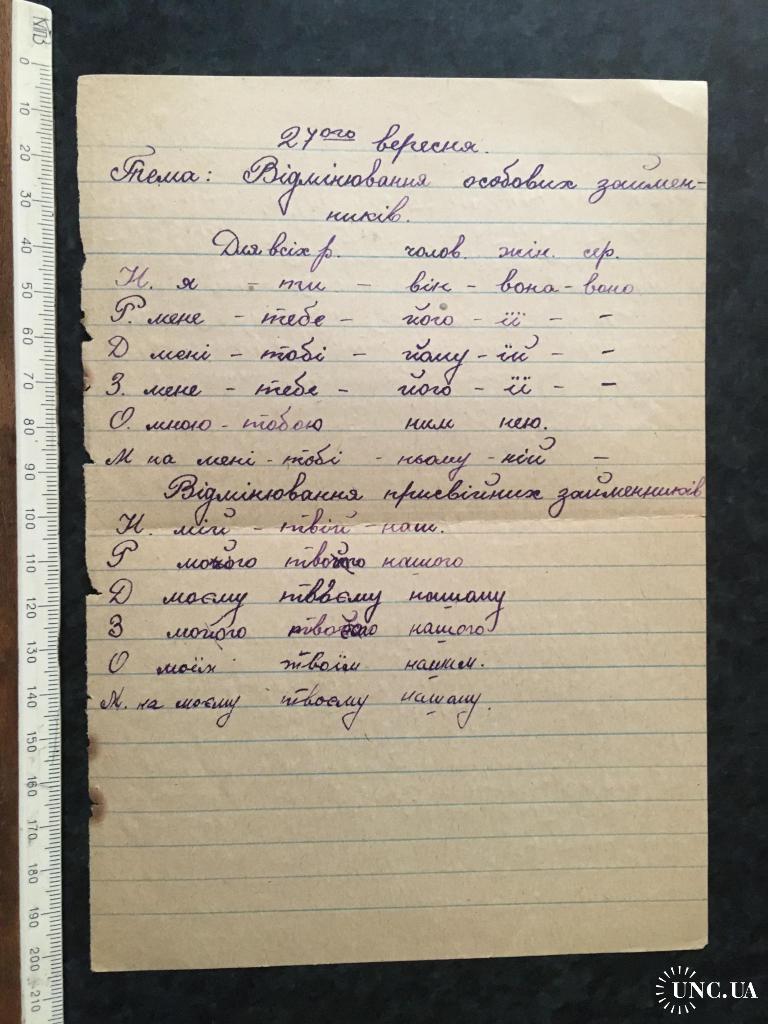 27ого вересня.
Тема: Відмінювання особових займен-
ників.
Для всіх р. чолов. жін. сер.
Н. я - ти - він - вона - воно
Р. мене - тебе - його - її - -
Д мені - тобі - йому - їй - -
З. мене - тебе - його - її - -
О. мною - тобою ним нею.
М на мені - тобі - ньому - ній -
Відмінювання присвійних займенників
Н. мій - твій - наш.
Р мойого твойго нашого
Д моєму твоєму нашому
З мойого нашого
О моїм твоїм нашим.
М. на моєму твоєму нашому.
UNC.UA